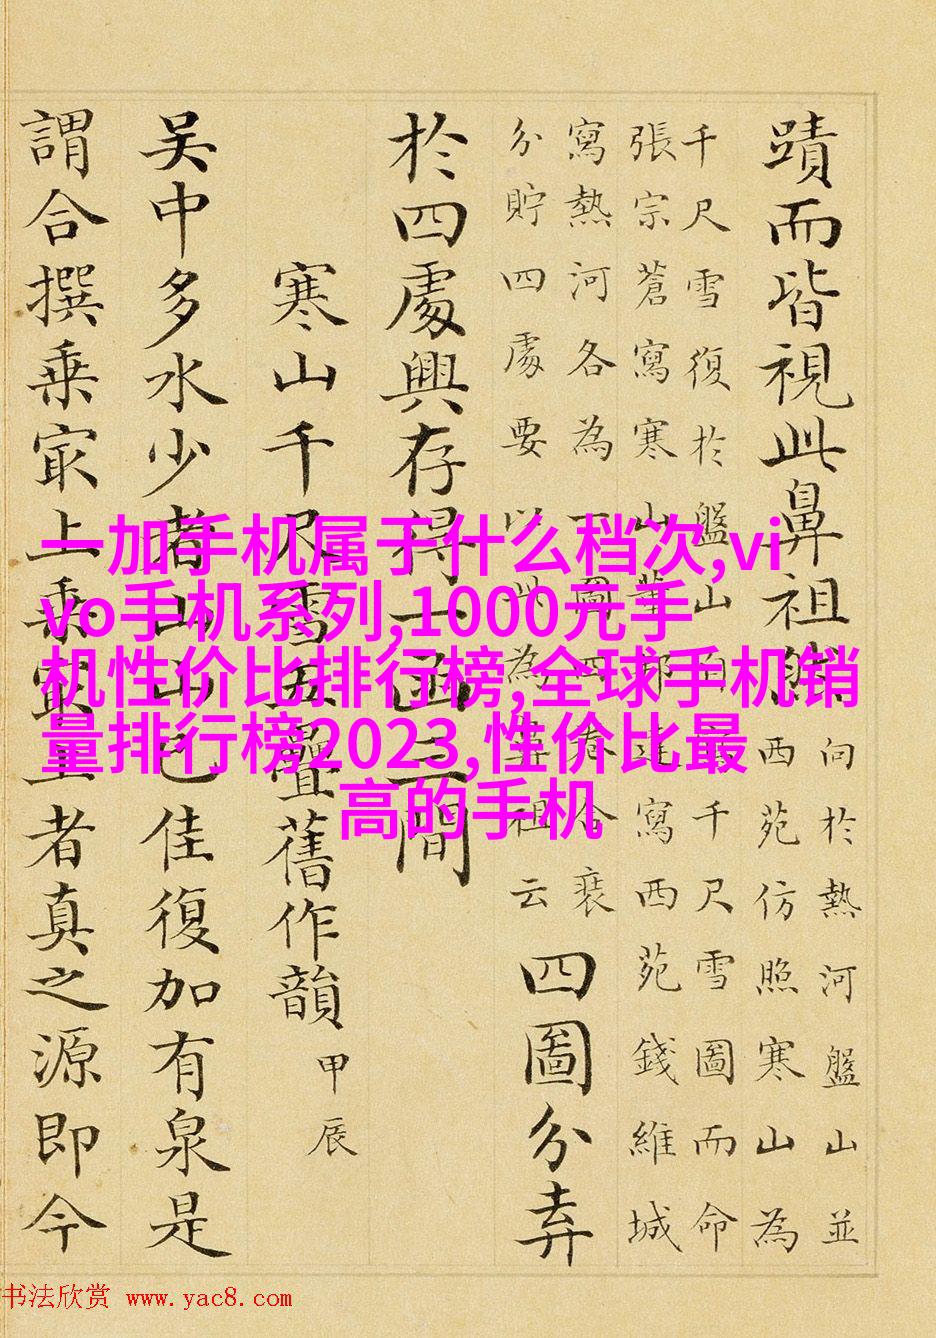 蹟而皆視此鼻祖
向於熱河盤山並
西苑仿照寒山為
千尺雪復於盤山自千尺雪圖而命
張宗蒼寫寒山董邦達寫西苑錢維城
寫熱河各為一圖四卷合裝
分貯四處要以此為鼻祖云
四圖分弆
於四處興存得一函三間
寒山千尺雪五疊舊作韻
甲辰
吳中多水少者山山也佳復加有泉是
謂合撰乘㝡上乘㝡上者真之源即今
一加手机属于什么档次,vi
vo手机系列,1000元手
机性价比排行榜,全球手机销
量排行榜2023,性价比最
高的手机
书法欣赏 www.yac8.com